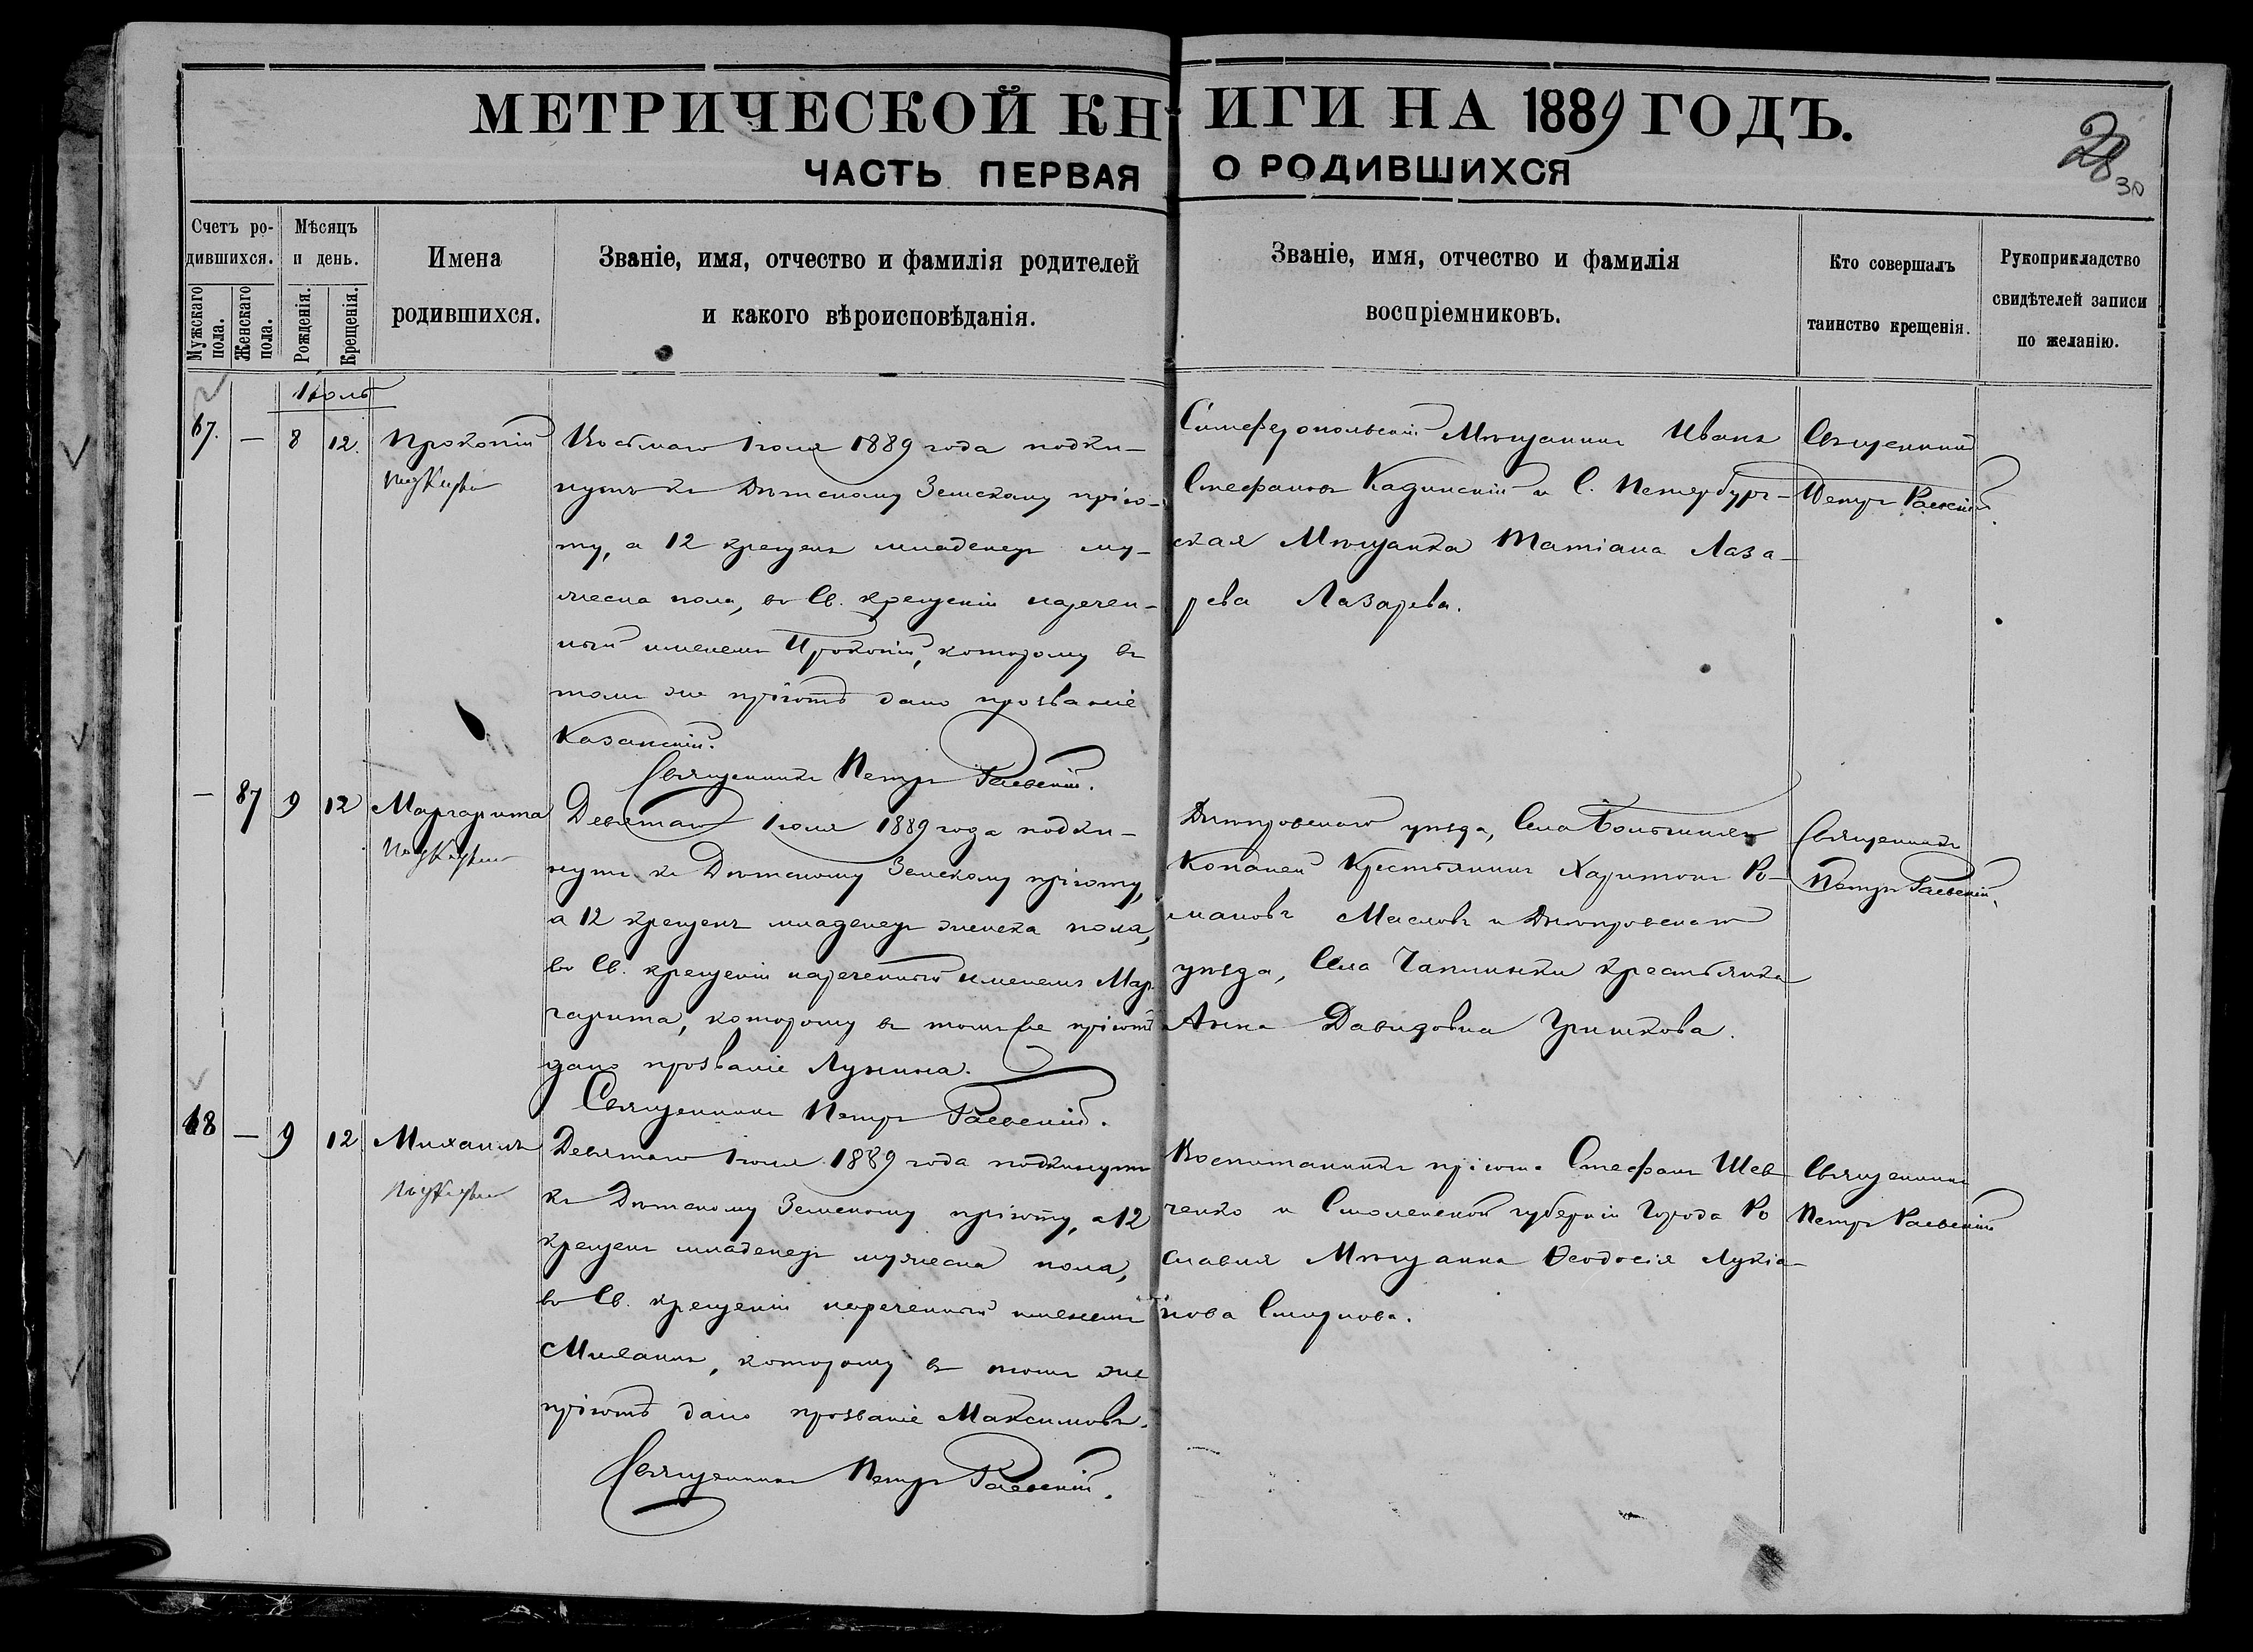 МЕТРИЧЕСКОЙ КНИГИ НА 1889 ГОДЪ.
28
30
ЧАСТЬ ПЕРВАЯ О РОДИВШИХСЯ
Счетъ ро-
дившихся.
Мужскаго пола.
Женскаго пола.
Мѣсяцъ
и день.
Рожденія.
Крещенія.
Имена
родившихся.
Званіе, имя, отчество и фамилія родителей
и какого вѣроисповѣданія.
Званіе, имя, отчество и фамилія
воспріемниковъ.
Кто совершалъ
таинство крещенія.
Рукоприкладство
свидѣтелей записи
по желанію.
Іюль
67. — 8 12. Прокопій
Восьмаго Іюля 1889 года подки-
нутъ къ Дѣтскому Земскому прію-
ту, а 12 крещенъ младенецъ му-
жеска пола, во Св. крещеніи наречен-
ный именемъ Прокопій, которому въ
томъ же пріютѣ дано прозваніе
Казанскій.
Священникъ Петръ Раевскій.
Симферопольскій Мѣщанинъ Иванъ
Стефановъ Кадинскій и С. Петербург-
ская Мѣщанка Татіана Лаза-
рева Лазарева.
Священникъ
Петръ Раевскій.
— 87 9 12 Маргарита
Девятаго Іюля 1889 года подки-
нутъ къ Дѣтскому Земскому пріюту,
а 12 крещенъ младенецъ женска пола,
во Св. крещеніи нареченный именемъ Мар-
гарита, которому въ томъ же пріютѣ
дано прозваніе Лунина.
Священникъ Петръ Раевскій.
Днѣпровскаго уѣзда, Села Большихъ
Копаней Крестьянинъ Харитонъ Ро-
мановъ Маслов и Днѣпровскаго
уѣзда, Села Чаплинки крестьянка
Анна Давидовна Гришкова.
Священникъ
Петръ Раевскій.
68 — 9 12 Михаилъ
Девятаго Іюля 1889 года подкинутъ
къ Дѣтскому Земскому пріюту, а 12
крещенъ младенецъ мужеска пола,
во Св. крещеніи нареченный именемъ
Михаилъ, которому въ томъ же
пріютѣ дано прозваніе Максимовъ.
Священникъ Петръ Раевскій.
Воспитанникъ пріюта Стефанъ Шев
ченко и Смоленской губерніи Города Ро
славля Мѣщанка Ѳеодосія Лукіа-
нова Смирнова.
Священникъ
Петръ Раевскій